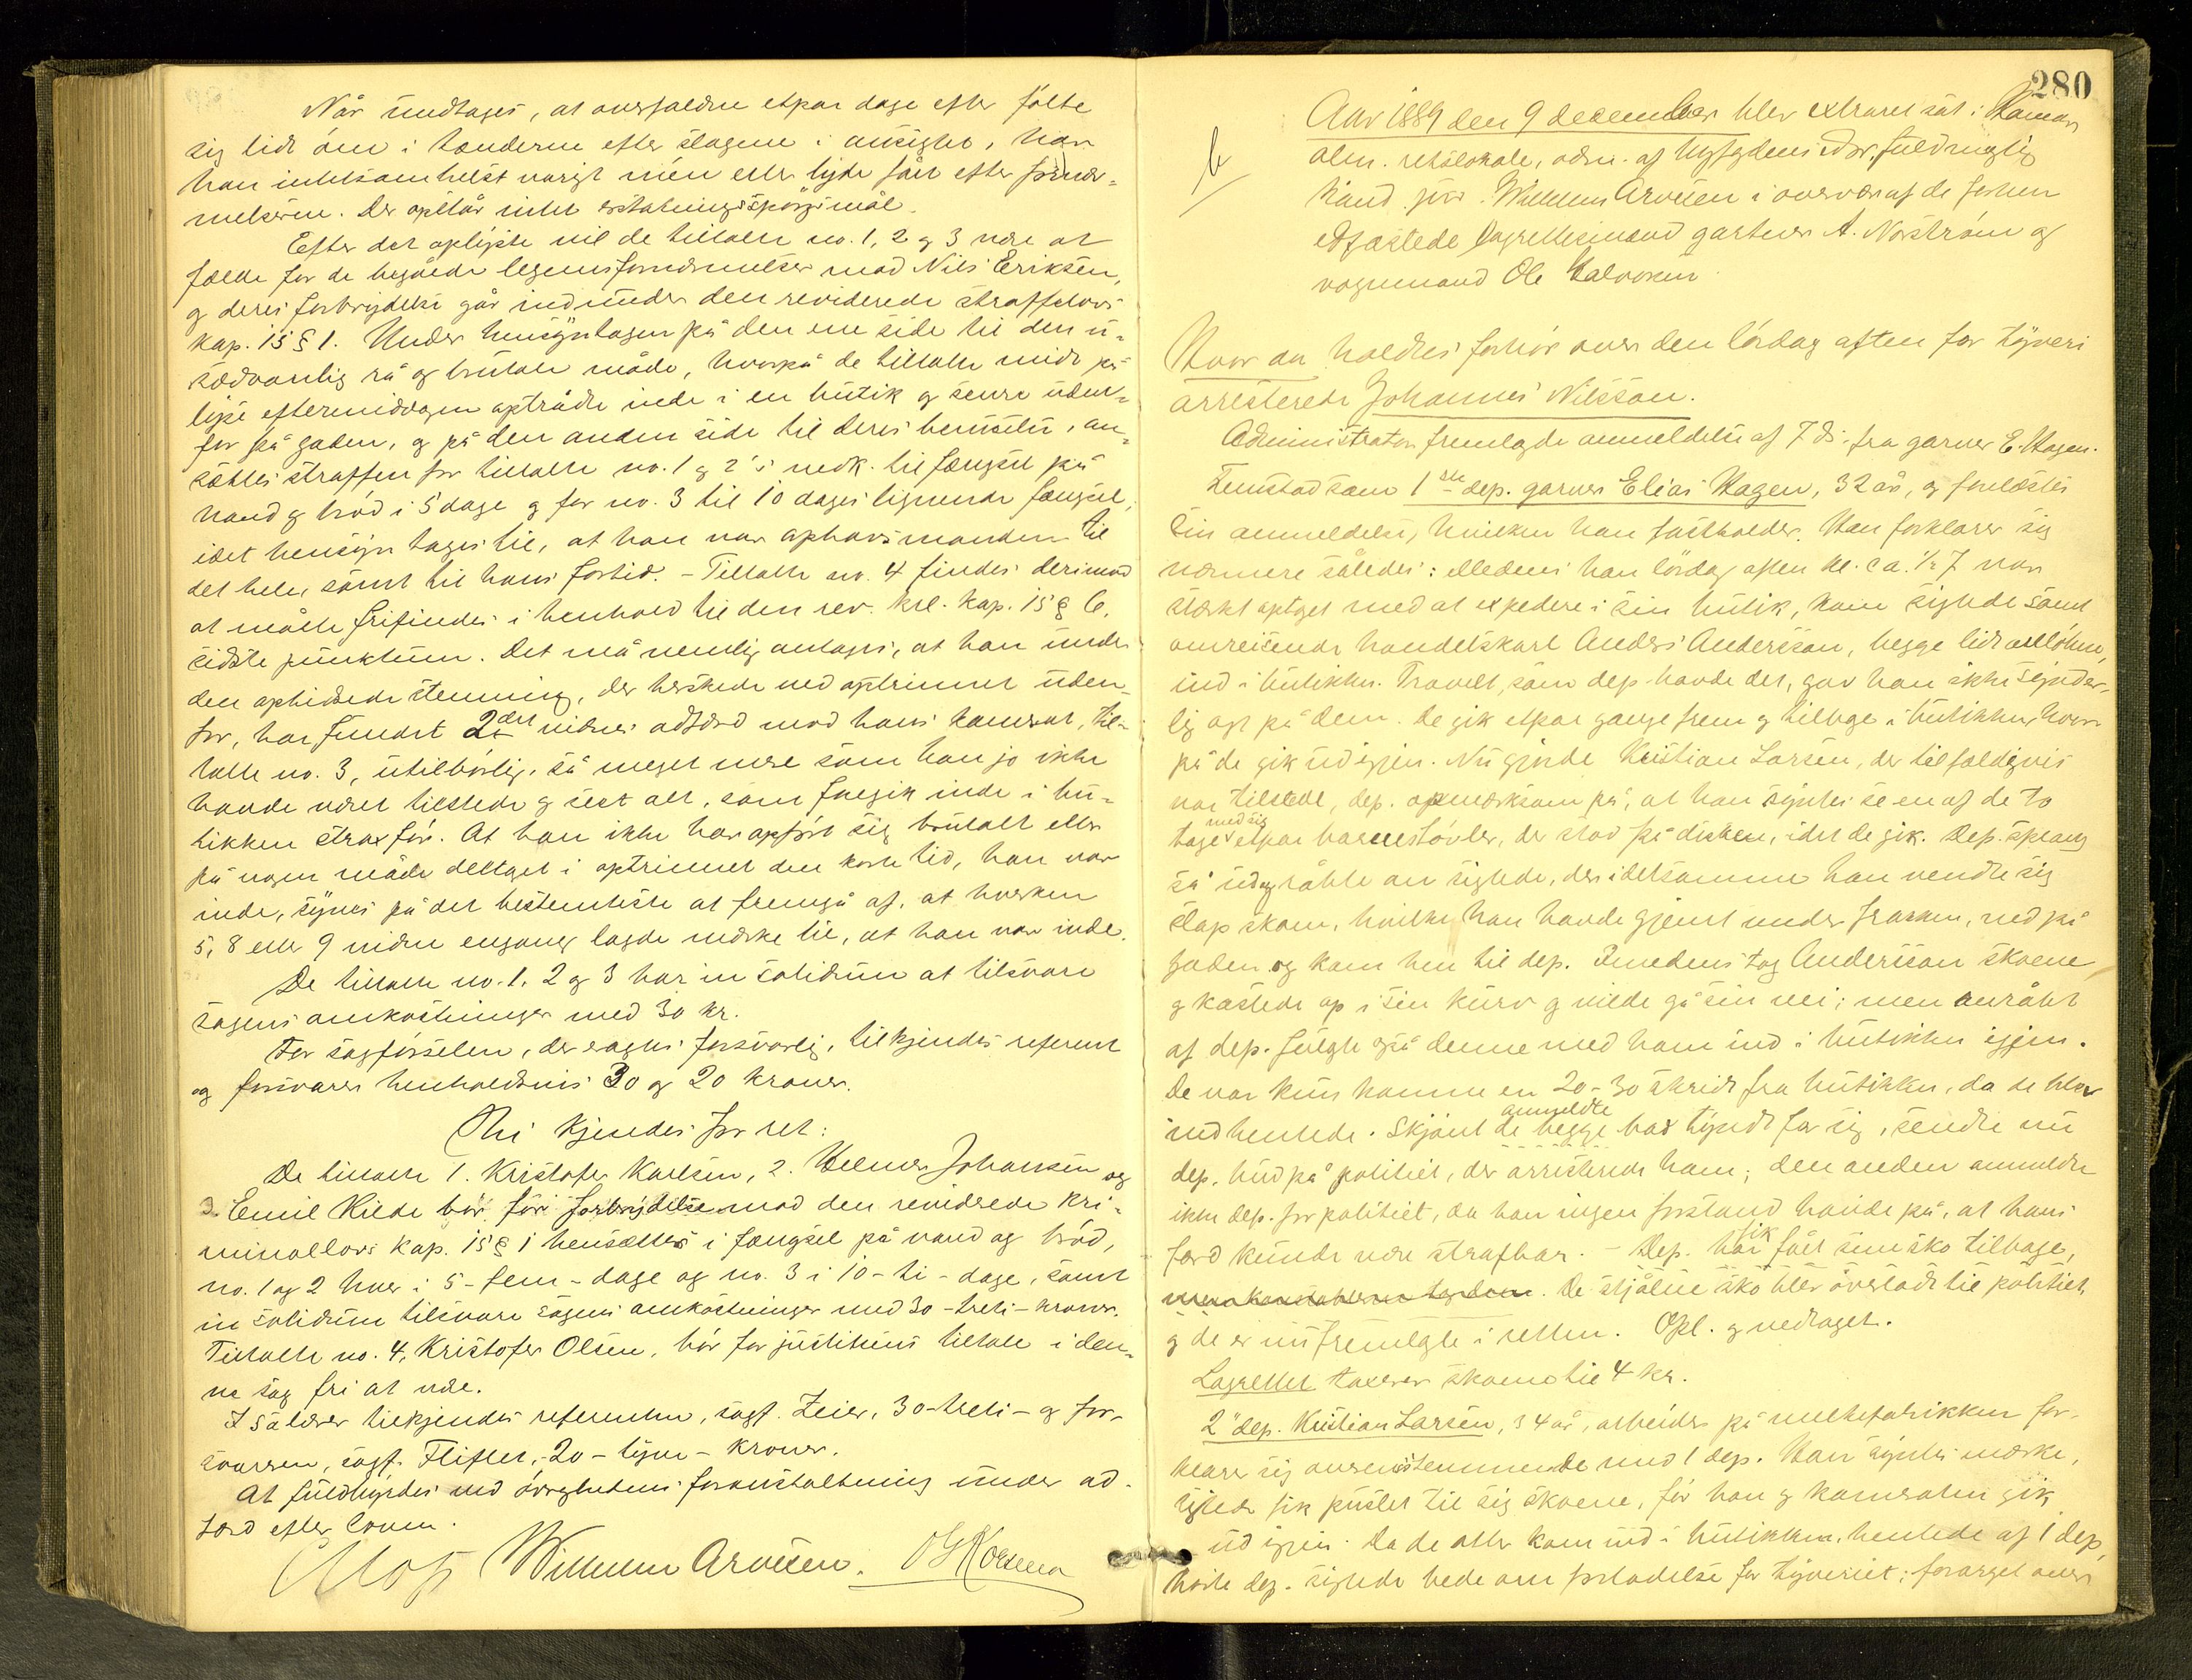 Når undtages, at overfaldne etpar dage efter følte
sig lidt øm i tænderne efter slagene i ansigtet, har
han intetsomhelst varigt mén eller lyde fået efter fornær-
melserne. Der opstår intet erstatningsspørgsmål.
Efter det oplyste vil de tiltalte no. 1, 2 og 3 være at
fælde for de begåede legemsfornærmelser mod Nils Eriksen,
og deres forbrydelse går ind under den reviderede straffelovs
kap. 15 § 1. Under hensyntagen på den ene side til den u-
sædvanlig rå og brutale måde, hvorpå de tiltalte midt på
lyse eftermiddagen optrådte inde i en butik og senere uden-
for på gaden, og på den anden side til deres beruselse, an-
sættes straffen for tiltalte no. 1 og 2's vedk. til fængsel på
vand og brød i 5 dage og for no. 3 til 10 dages lignende fængsel,
idet hensyn tages til, at han var ophavsmanden til
det hele, samt til hans fortid. - Tiltalte no. 4 findes derimod
at måtte frifindes i henhold til den rev. krl. kap. 15 § 6,
sidste punktum. Det må nemlig antages, at han under
den ophidsede stemning, der herskede ved optrinnet uden-
for, har fundet 2det vidnes adfærd mod hans kamerat, til-
talte no. 3, utilbørlig, så meget mere som han jo ikke
havde været tilstede og seet alt, som foregik inde i bu-
tikken strax før. At han ikke har opført sig brutalt eller
på nogen måde deltaget i optrinnet den korte tid, han var
inde, synes på det bestemteste at fremgå af, at hverken
5, 8 eller 9 vidne engang lagde mærke til, at han var inde.
De tiltalte no. 1, 2 og 3 har in solidum at tilsvare
sagens omkostninger med 30 kr.
For sagførselen, der ragtes forsvarlig, tilkjendes referent
og forsvarer henholdsvis 30 og 20 kroner.
Thi kjendes for ret:
De tiltalte 1. Kristofer Karlsen, 2. Helmer Johansen og
3. Emil Kilde bør for forbrydelse mod den reviderede kri-
minallovs kap. 15 § 1 hensættes i fængsel på vand og brød,
no. 1 og 2 hver i 5 - fem - dage og no. 3 i 10 - ti - dage, samt
in solidum tilsvare sagens omkostninger med 30 - treti - kroner.
Tiltalte no. 4, Kristofer Olsen, bør for justitiens tiltale i den-
ne sag fri at være.
I salærer tilkjendes referenten, sagf. Zeier, 30 - treti - og for-
svareren, sagf. Flifflet, 20 - tyve - kroner.
At fuldbyrdes ved øvrighedens foranstaltning under ad-
færd efter loven.
Wilhelm Arvesen.
280
Aar 1889 den 9 december blev extraret sat i Hamar
alm. retslokale, adm. af byfogdens edsv. fuldmægtig
kand. jur. Wilhelm Arvesen i overvær af de forhen
edfæstede lagrettesmænd gartner A. Norström og
vognmand Ole Halvorsen
Hvor da holdtes forhør over den lørdag aften for tyveri
arresterede Johannes Nilsson.
Administrator fremlagde anmeldelse af 7 ds. fra garver E. Hagen.
Fremstod som 1ste dep. garver Elias Hagen, 32 år, og forelæstes
sin anmeldelse, hvilken han fastholder. Han forklarer sig
nærmere således: Medens han lørdag aften kl. ca. ½ 7 var
stærkt optaget med at expedere i sin butik, kom sigtede samt
omreisende handelskarl Anders Andersson, begge lidt
ind i butikken. Travelt, som dep. havde det, gav han ikke synder-
lig agt på dem. De gik etpar gange frem og tilbage i butikken, hvor-
på de gik ud igjen. Nu gjorde Kristian Larsen, der tilfældigvis
var tilstede, dep. opmærksom på, at han syntes se en af de to
tage med sig etpar barnestøvler, der stod på disken, idet de gik. Dep. sprang
så ud og råbte an sigtede, der i detsamme han vendte sig
slap skoene, hvilke han havde gjemt under frakken, ned på
gaden og kom hen til dep. Imedens tog Andersson skoene
og kastede op i sin kurv og vilde gå sin vei; men anråbt
af dep. fulgte også denne med ham ind i butikken igjen.
De var kun komne en 20-30 skridt fra butikken, da de blev
indhentede. Skjønt de begge bad tyndt for sig, sendte nu
anmeldte
dep. bud på politiet, der arresterede ham; den anden anmeldte
ikke dep. for politiet, da han ingen forstand havde på, at hans
færd kunde være strafbar. - Dep. fik sine sko tilbage,
De stjålne sko blev overladt til politiet,
og de er nu fremlagte i retten. Opl. og vedtaget.
Lagrettet taxerer skoene til 4 kr.
2" dep. Kristian Larsen, 34 år, arbeider på meltefabrikken for-
klarer sig overensstemmende med 1 dep. Han syntes mærke,
sigtede fik puslet til sig skoene, før han og kameraten gik
ud igjen. Da de atter kom ind i butikken, hentede af 1 dep,
hørte dep. sigtede bede om forladelse for tyveriet; forøvrigt over